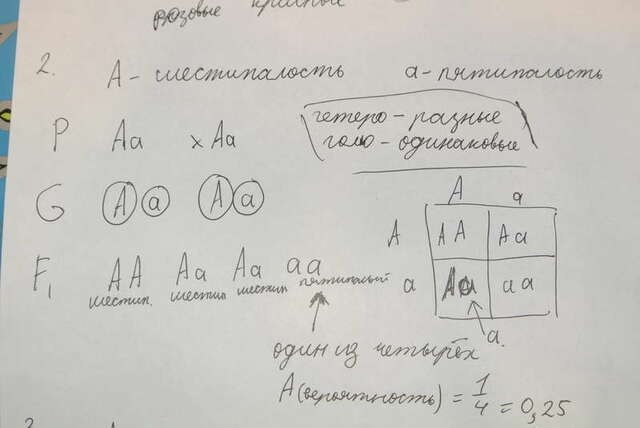 розовые красной
2. A - шестипалость a - пятипалость
P Aa x Aa
гетеро - разные
гомо - одинаковые
G A a A a
A a
A AA Aa
F₁ AA Aa Aa aa
шестип. шестип шестип пятипалый
a Aa aa
a.
один из четырёх
A(вероятность) = 1/4 = 0,25